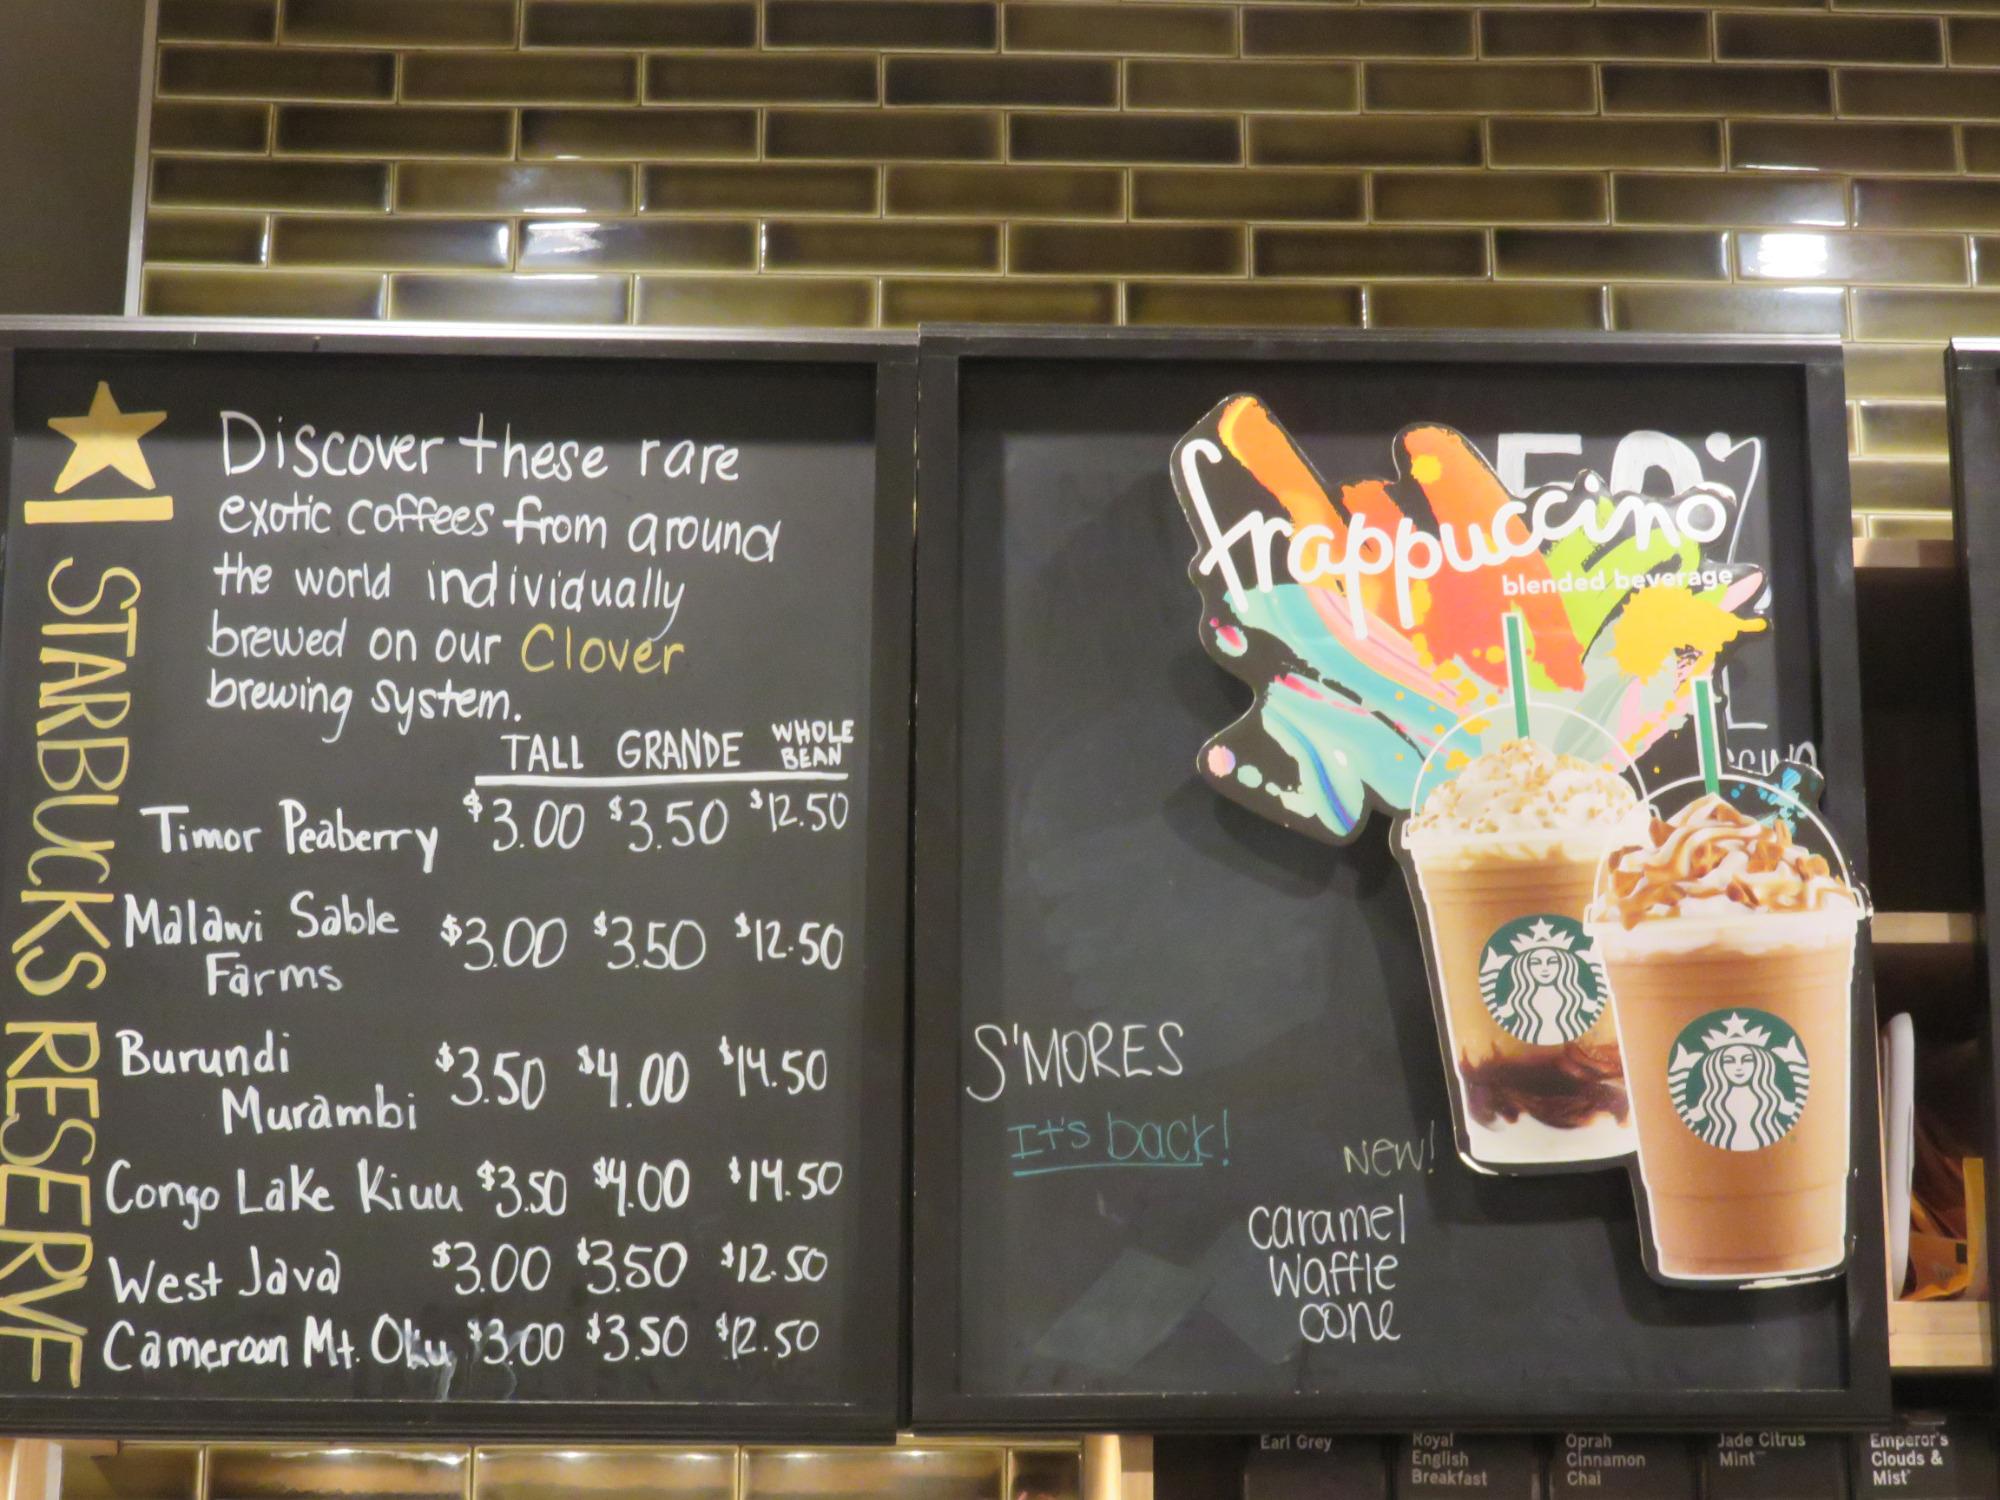 STARBUCKS RESERVE
Discover these rare
exotic coffees from around
the world individually
brewed on our Clover
brewing system.
TALL GRANDE WHOLE BEAN
Timor Peaberry $3.00 $3.50 $12.50
Malawi Sable
Farms $3.00 $3.50 $12.50
Burundi
Murambi $3.50 $4.00 $14.50
Congo Lake Kivu $3.50 $4.00 $14.50
West Java $3.00 $3.50 $12.50
Cameroon Mt. Oku $3.00 $3.50 $12.50
frappuccino
blended beverage
S'MORES
It's back!
New!
caramel
waffle
cone
Earl Grey
Royal
English
Breakfast
Oprah
Cinnamon
Chai
Jade Citrus
Mint™
Emperor's
Clouds &
Mist®